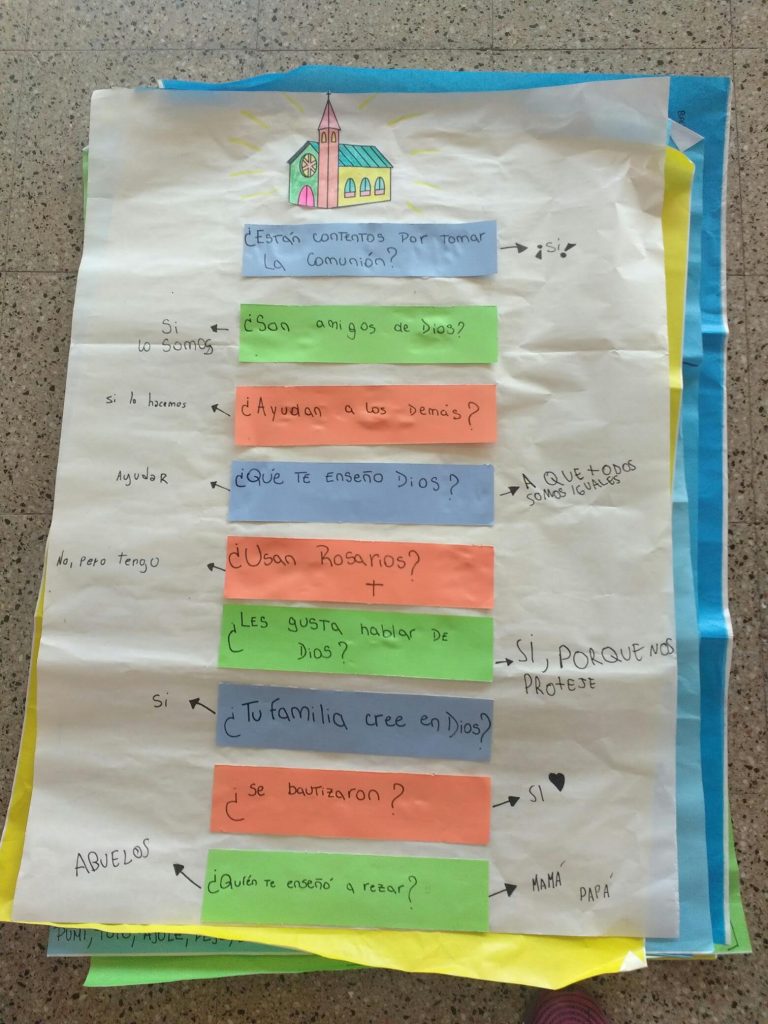 ¿Están contentos por tomar
la comunión?
¡Si!
¿Son amigos de Dios?
Si
lo somos
¿Ayudan a los demás?
si lo hacemos
¿Qué te enseño Dios?
Ayudar
A QUE todos
SOMOS IGUALES
¿Usan Rosarios?
No, pero tengo
¿Les gusta hablar de
Dios?
SI, PORQUE NOS
PROTEJE
¿Tu familia cree en Dios?
Si
¿Se bautizaron?
SI
¿Quién te enseñó a rezar?
ABUELOS
MAMÁ
PAPÁ